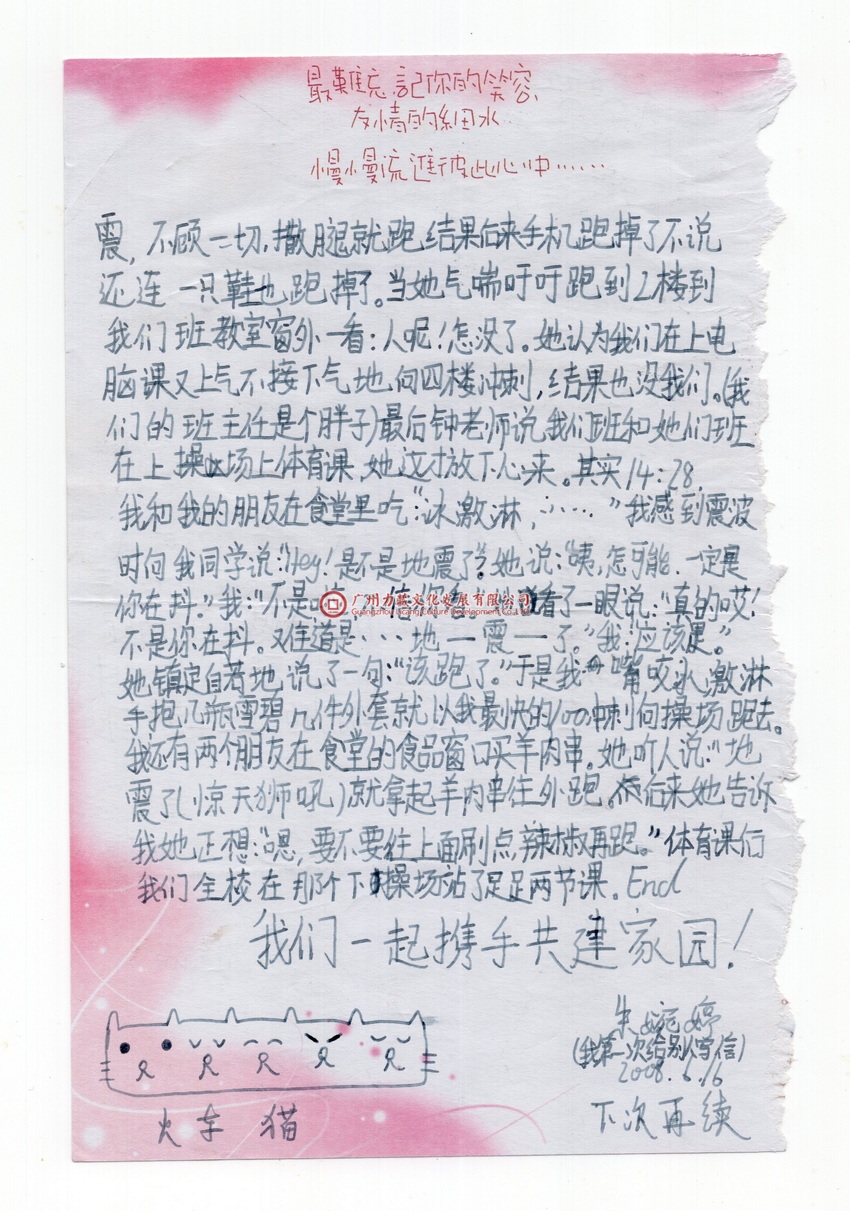 最難忘記你的笑容
友情的細水
慢慢流進彼此心中……
震,不顾一切,撒腿就跑结果后来手机跑掉了不说
还连一只鞋也跑掉了。当她气喘吁吁跑到2楼到
我们班教室窗外一看:人呢!怎没了。她认为我们在上电
脑课又上气不接下气地向四楼冲刺,结果也没我们。(我
们的班主任是个胖子)最后钟老师说我们班和她们班
在上操场上体育课,她这才放下心来。其实14:28,
我和我的朋友在食堂里吃“冰激淋,……”我感到震波
时向我同学说:“Hey!是不是地震了?她说:“咦,怎可能.一定是
你在抖。”我:“不是
广州力藏文化发展有限公司
看了一眼说:“真的哎!
不是你在抖。难道是…地一震一了。”我:“应该是。”
她镇定自若地说了一句:“该跑了。”于是我嘴咬冰激淋
手抱几瓶雪碧几件外套就以我最快的100冲刺向操场跑去。
我还有两个朋友在食堂的食品窗口买羊肉串。她听人说:“地
震了(惊天狮吼)就拿起羊肉串往外跑。后来她告诉
我她还想:“嗯,要不要往上面刷点辣椒再跑。”体育课后
我们全校在那个下操场站了足足两节课。End
我们一起携手共建家园!
朱婉婷
(我第一次给别人写信)
2008.6.16
火车猫
下次再续